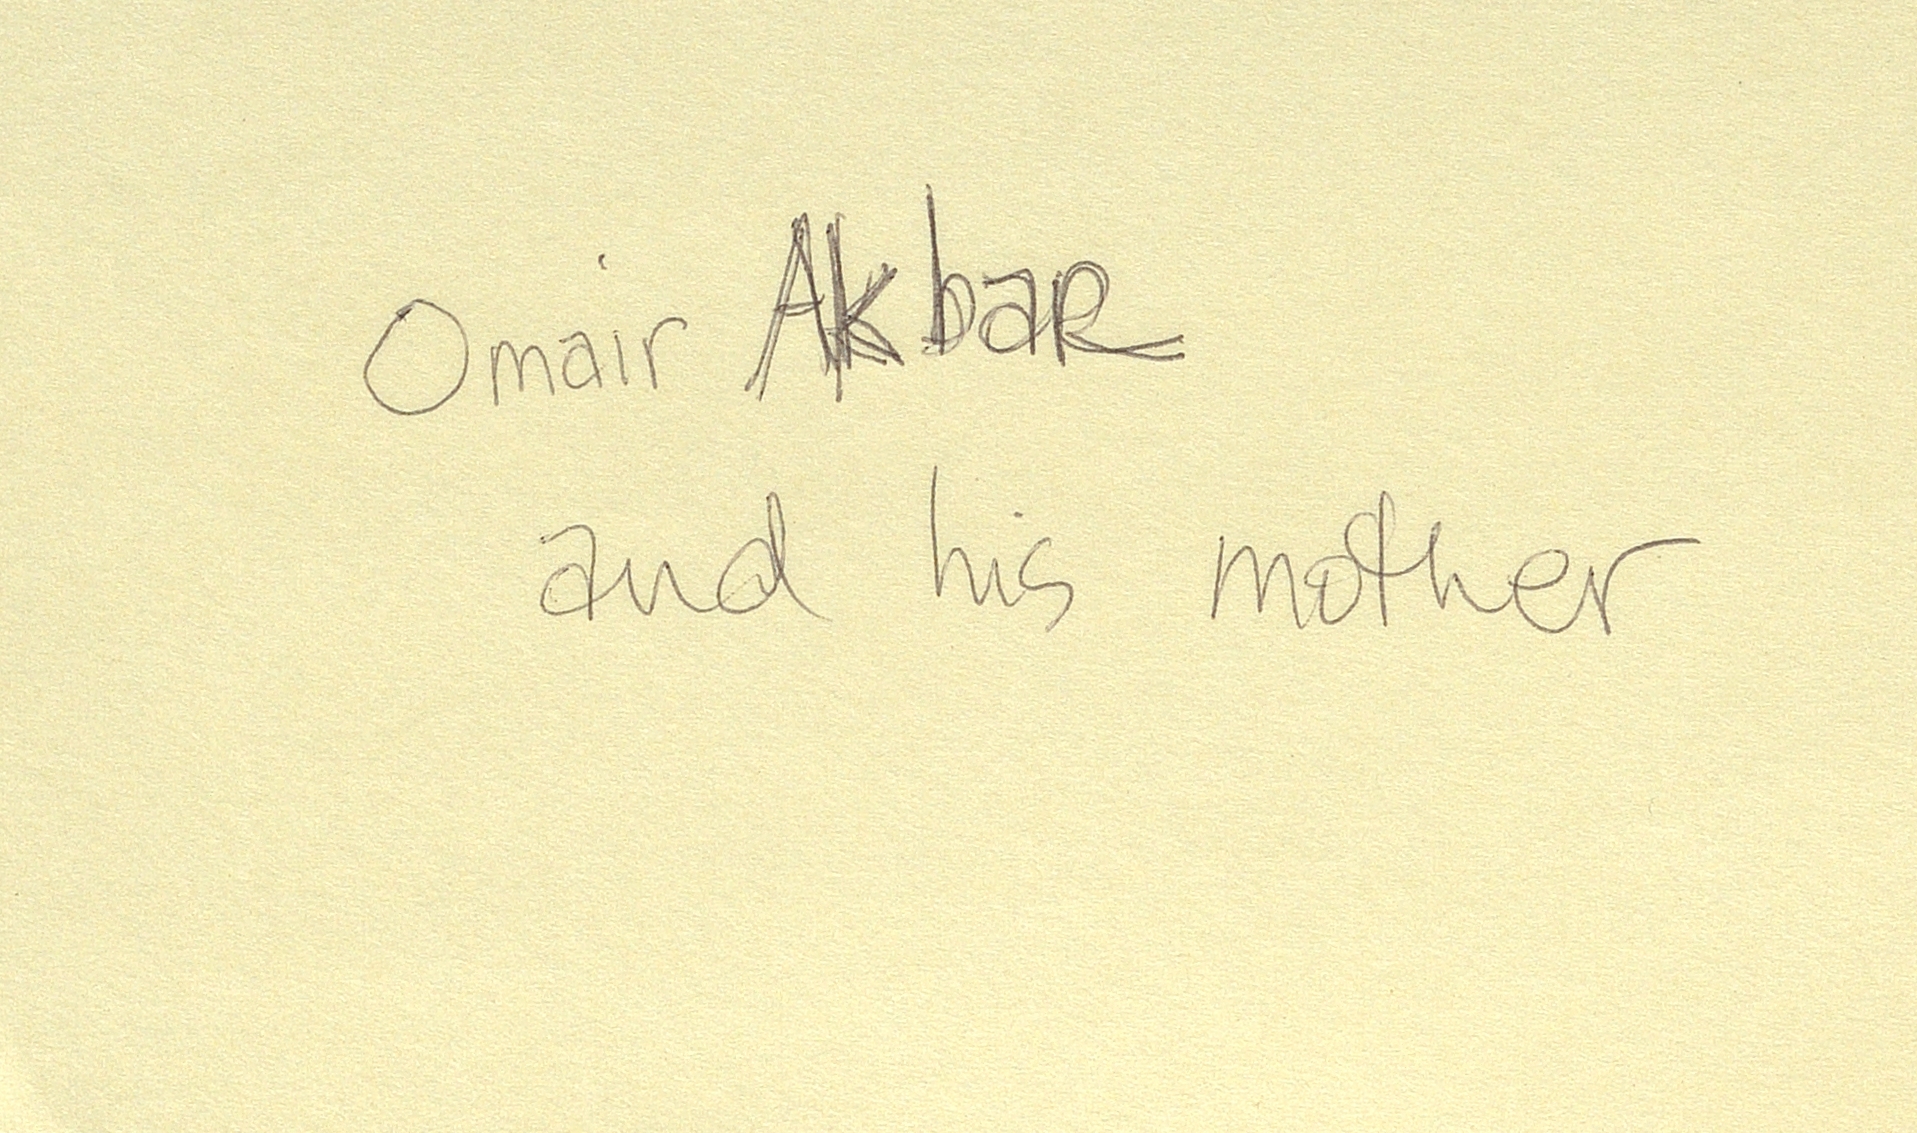 Omair Akbar
and his mother